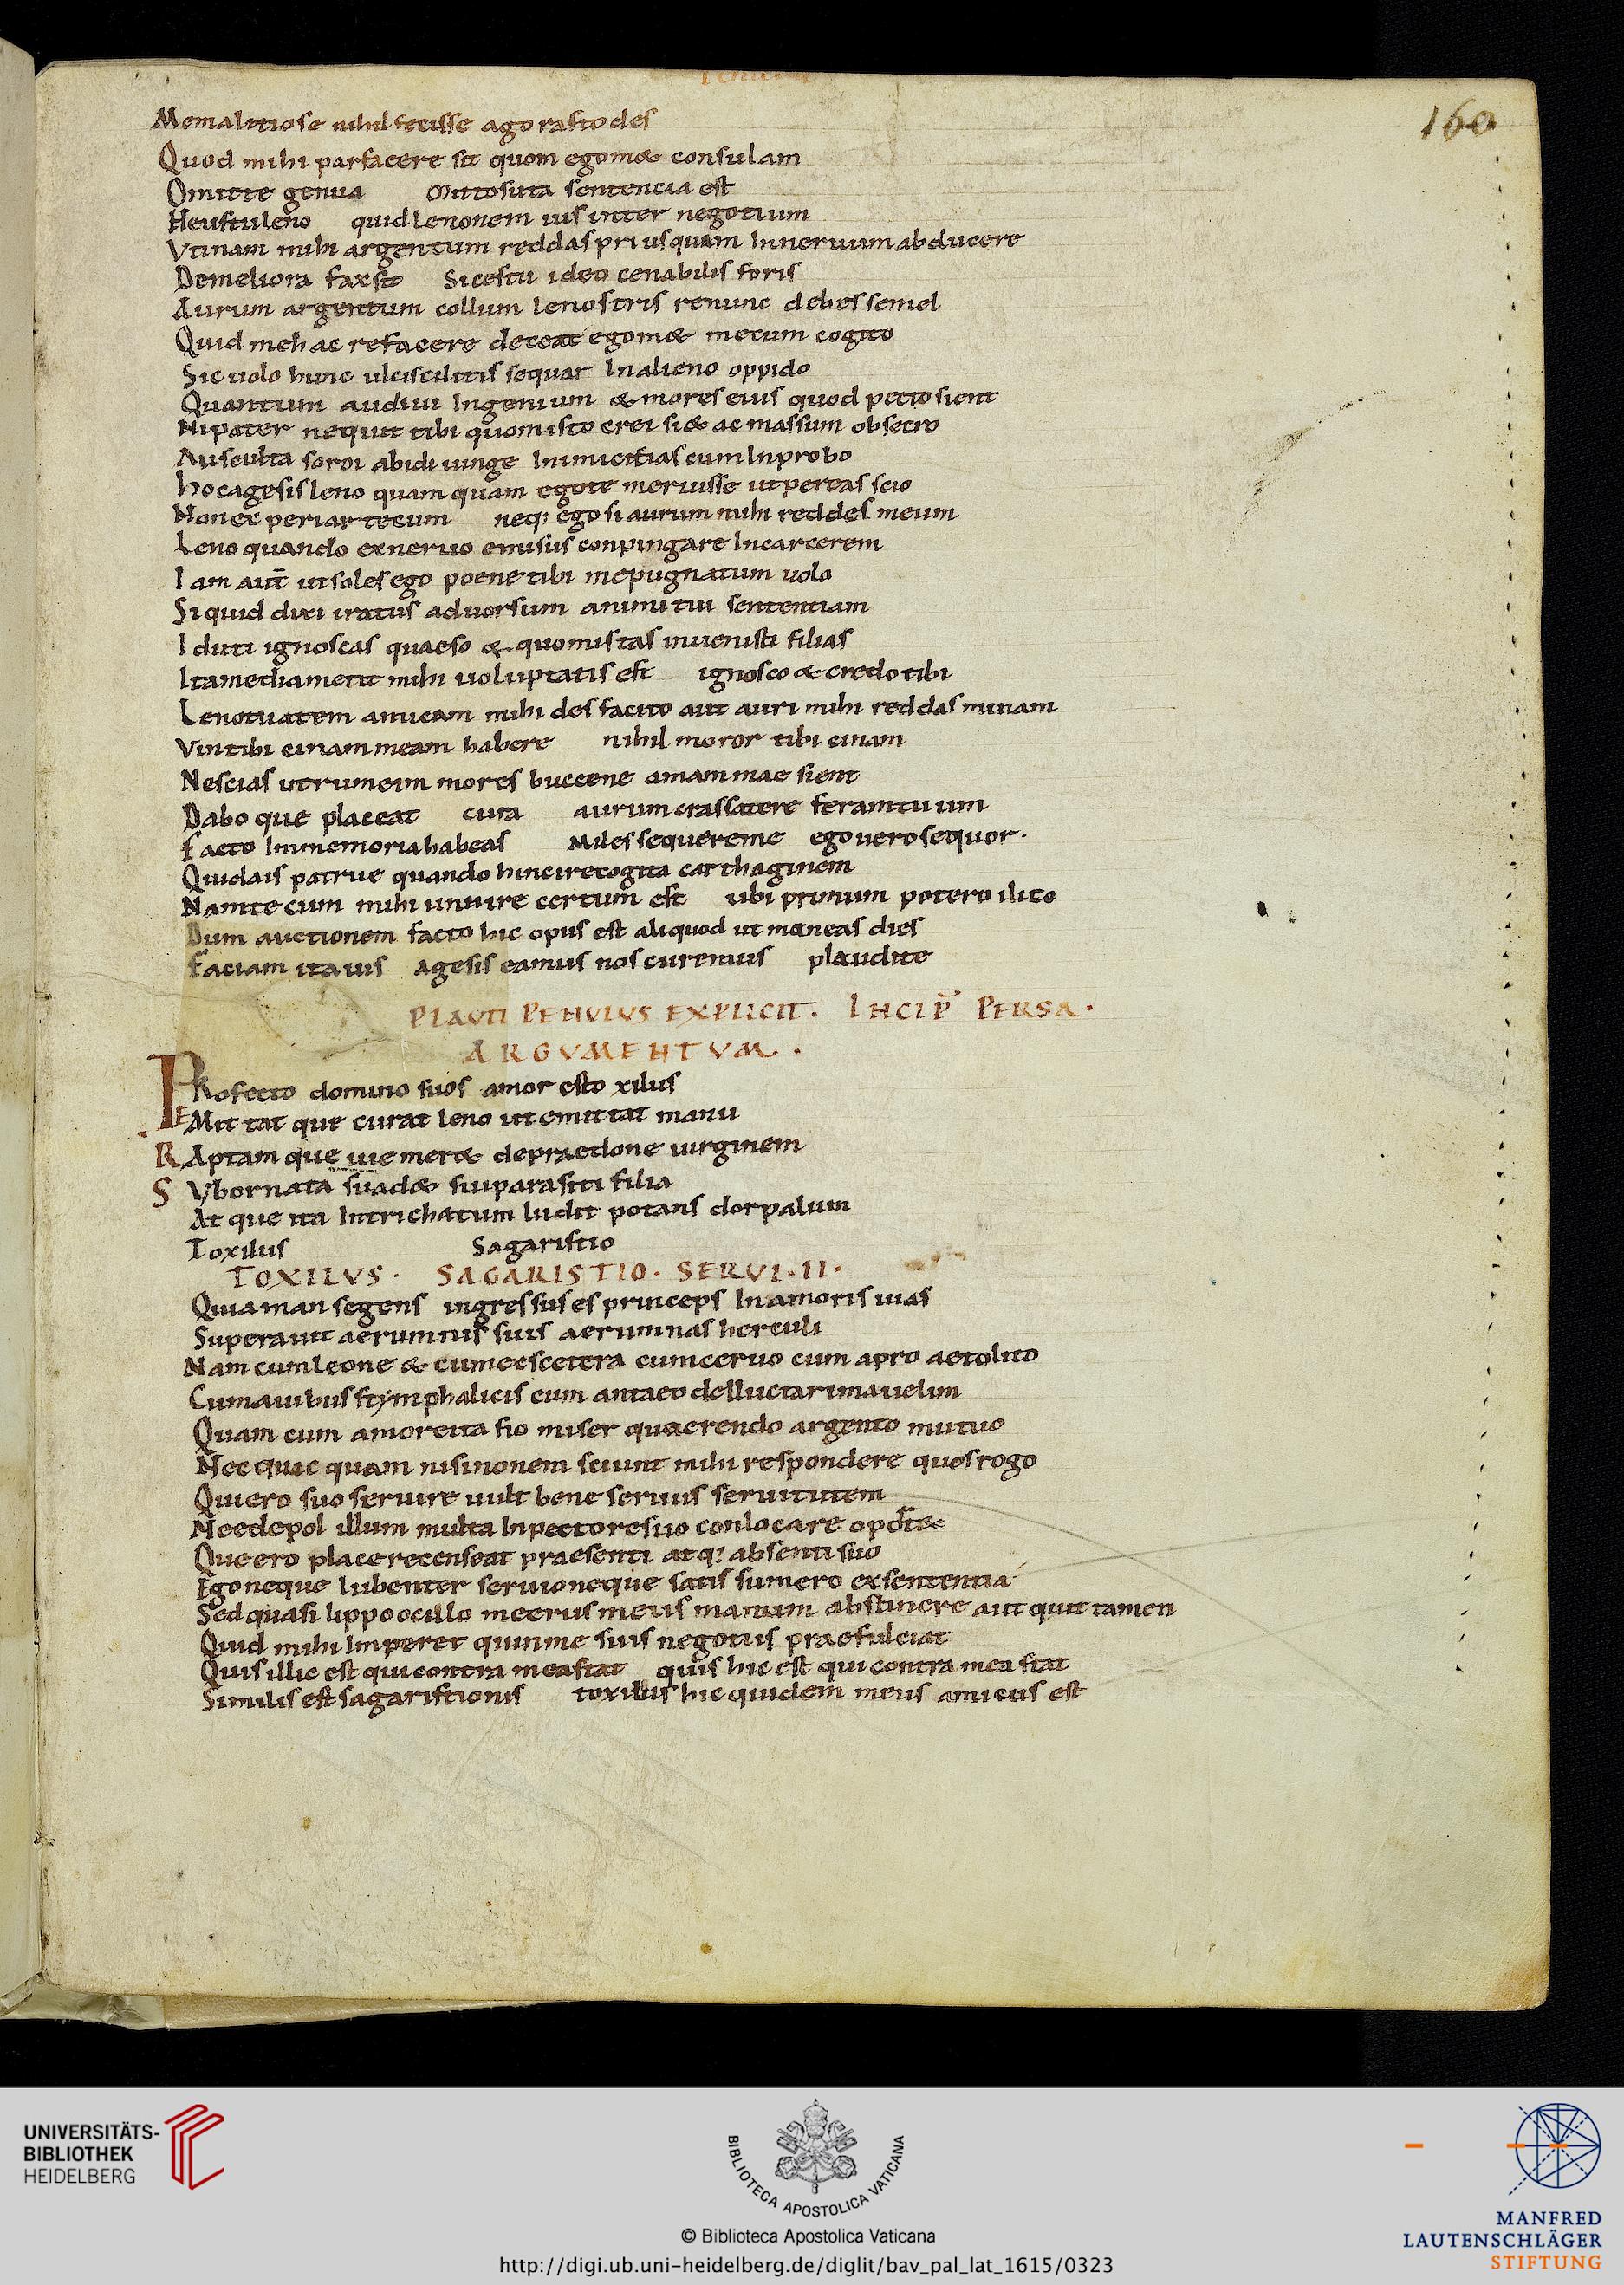 160
Memalitiose nihil fecisse agorastodes
Quod mihi parfacere sit quom egom& consulam
Omitte genua omitto suta sentencia est
Heustuleno quid lenonem uis inter negotium
Vtinam mihi argentum reddas priusquam Inneruum abducere
Demeliora faxsto Sicestu ideo cenabilis foris
Aurum argentum collum leno stris renunc debes semel
Quid meh ac refacere deceat egom& mecum cogito
Sic uolo hunc ulciscilitis sequar Inalieno oppido
Quantum audiui Ingenium & mores eius quod pecto sient
Nipater nequit tibi quomisto erei si& ac massum obsecro
Ausculta soroi abidi iunge Inimicitias cum Inprobo
hocagesis leno quam quam egote meruisse ut pereas scio
Non ex periar tecum neq; ego si aurum mihi reddes meum
Leno quando exneruo emisus conpingare Incarcerem
Iam aut̄ ut soles ego poene tibi mepugnatum uolo
Si quid dixi iratus aduorsum animi tui sententiam
Iduti ignoscas quaeso & quomistas inuenisti filias
Itamediametit mihi uoluptatis est ignosco & credo tibi
Lenotuatem amicam mihi des facito aut auri mihi reddas minam
Vintibi einammeam habere nihil moror tibi einam
Nescias utrumeim mores buccene amammae sient
Dabo que placeat cura aurum crassatere feramtuum
Facto Inmemoria habeas Miles sequereme ego uero sequor.
Quidais patrue quando hincirecogita carthaginem
Namtecum mihi unuire certum est ubi primum potero ilico
Dum auctionem facto hic opus est aliquod ut maneas dies
Faciam ita uis Agesis eamus nos curemus plaudite
PLAUTI PENULUS EXPLICIT. INCIP̄ PERSA.
ARGVMENTVM.
PRofecto domino suos amor esto xilus
EMit tat que curat leno ut emittat manu
RAptam que uiemer& depraedone uirginem
SVbornata suad& sui parasiti filia
At que ita Intrichatum ludit potans dorpalum
Toxilus Sagaristio
TOXILVS. SAGARISTIO. SERVI. II.
Quiaman segens ingressus es princeps Inamoris uias
Superauit aerumnis suis aerumnas herculi
Nam cumleone & cumcescetera cumceruo cum apro aetolito
Cumauibus stymphalicis cum antaeo delluctari mauelim
Quam cum amoreita fio miser quaerendo argento mutuo
Nec quic quam nisinonem sciunt mihi respondere quos rogo
Quiero suo seruire uult bene seruus seruitutem
Needepol illum multa Inpectoresuo conlocare opo͞rte
Queero placerecenseat praesenti atq; absenti suo
Ego neque lubenter seruioneque satis sumero exsententia
Sed quasi lippo oculo meerus meus manum abstinere aut quit tamen
Quid mihi Imperet quinme suis negotiis praefulciat
Quis illic est quicontra meastat quis hic est qui contra mea stat
Similis est sagaristionis toxilus hic quidem meus amicus est
UNIVERSITÄTS-
BIBLIOTHEK
HEIDELBERG
BIBLIOTECA APOSTOLICA VATICANA
© Biblioteca Apostolica Vaticana
http://digi.ub.uni-heidelberg.de/diglit/bav_pal_lat_1615/0323
MANFRED
LAUTENSCHLÄGER
STIFTUNG